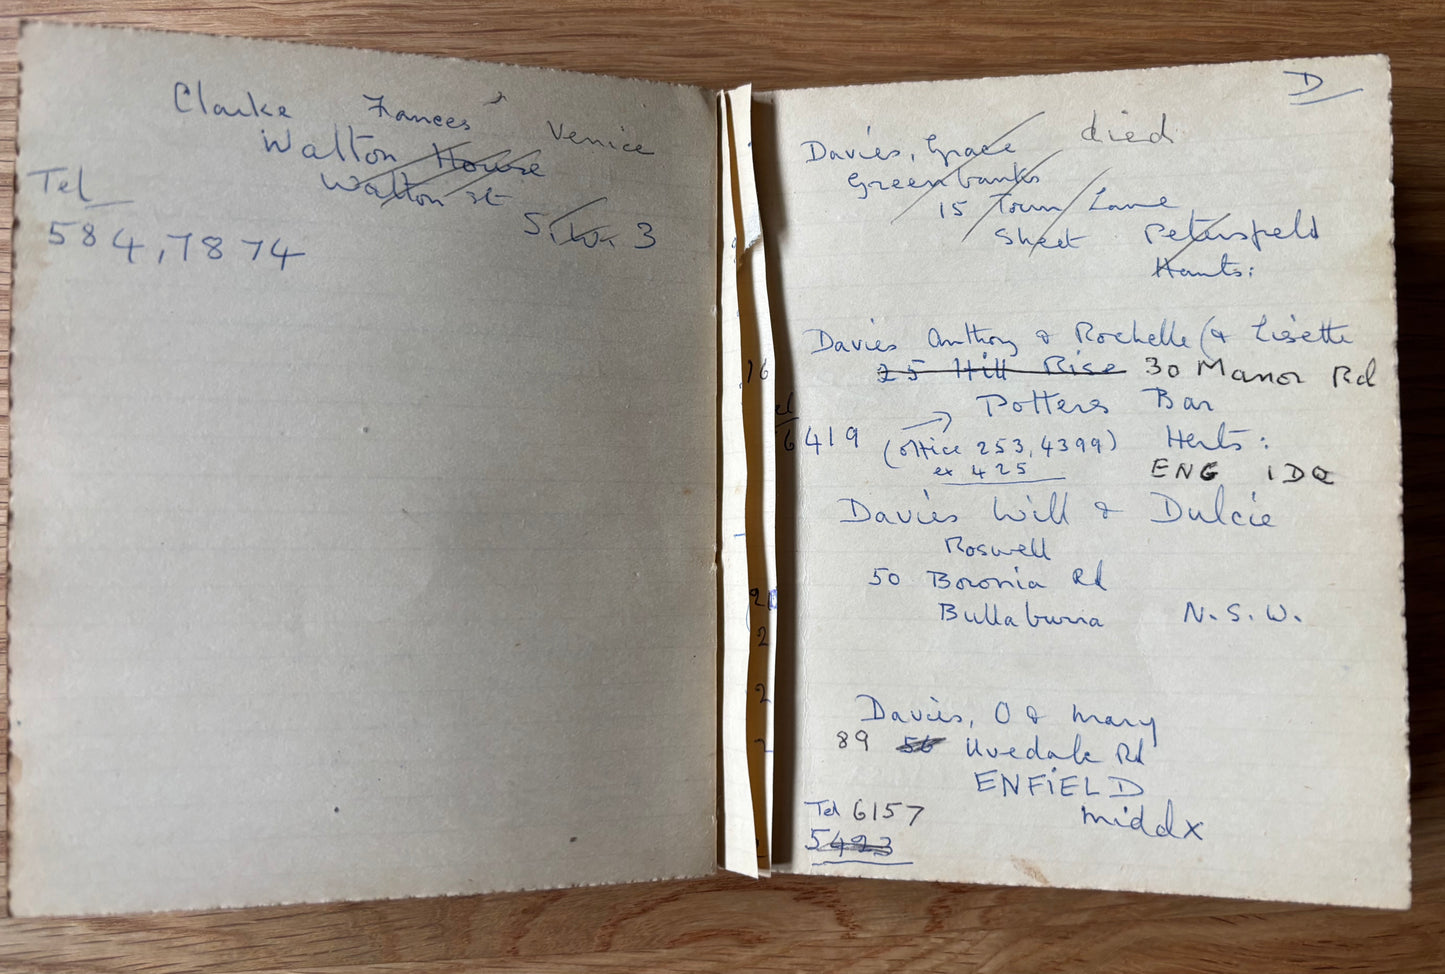 Clarke Frances Venice
Walton House
Walton St
S.W. 3
Tel
584,7874
D
Davies, Grace died
Greenbanks
15 Town Lane
Sheet Petersfield
Hants:
Davies Anthony & Rochelle (& Lisette
25 Hill Rise 30 Manor Rd
Potters Bar
6419 (office 253,4399) Herts:
ex 425 EN6 1DQ
Davies Will & Dulcie
Roswell
50 Boronia Rd
Bullaburra N.S.W.
Davies, O & Mary
89 56 Uvedale Rd
ENFIELD
Tel 6157 Middx
5423
76
2
2
2